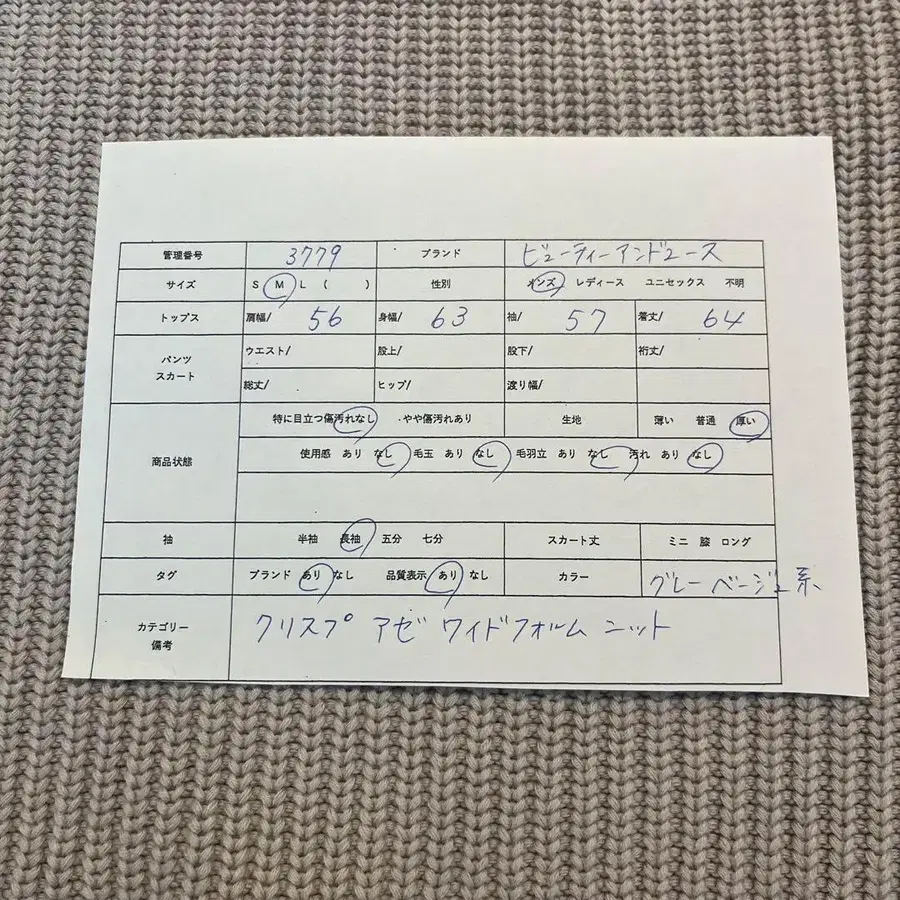 管理番号 3779 ブランド ビューティーアンドユース
サイズ S M L ( ) 性別 メンズ レディース ユニセックス 不明
トップス 肩幅/ 56 身幅/ 63 袖/ 57 着丈/ 64
パンツ スカート ウエスト/ 股上/ 股下/ 裄丈/
総丈/ ヒップ/ 渡り幅/
商品状態 特に目立つ傷汚れなし ・やや傷汚れあり 生地 薄い 普通 厚い
使用感 あり なし 毛玉 あり なし 毛羽立 あり なし 汚れ あり なし
袖 半袖 長袖 五分 七分 スカート丈 ミニ 膝 ロング
タグ ブランド あり なし 品質表示 あり なし カラー グレーベージュ系
カテゴリー 備考 クリスプ アゼ ワイドフォルム ニット